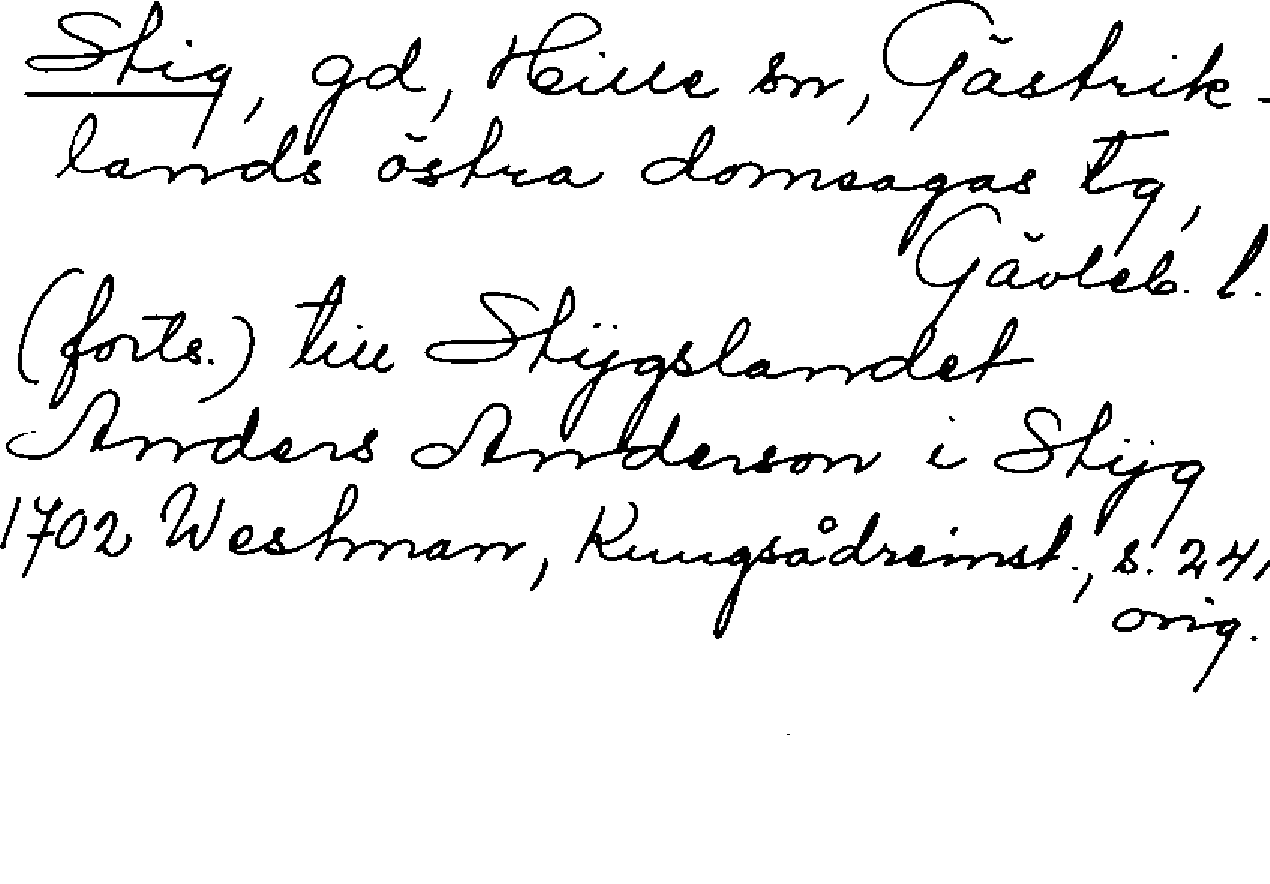 Stig, gd, Hille sn, Gästrik-
lands östra domsagas tg,
Gävleb. l.
(forts.) till Stijgslandet
Anders Anderson i Stijg
1702 Westman, Kungsådreinst., s. 24,
orig.